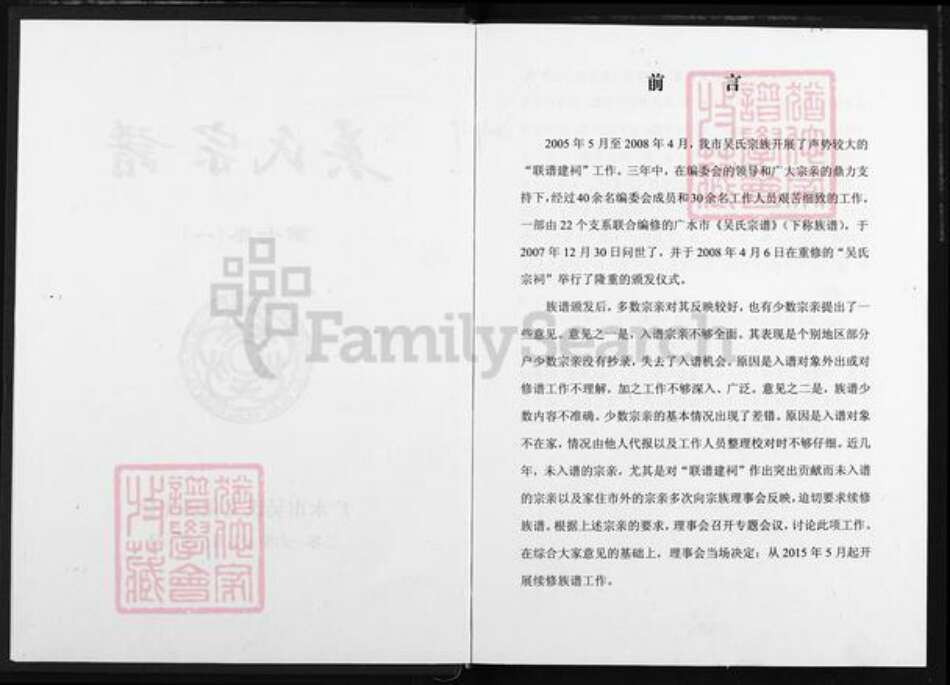 前言
2005年5月至2008年4月，我市吴氏宗族开展了声势较大的
“联谱建祠”工作。三年中，在编委会的领导和广大宗亲的鼎力支
持下，经过40余名编委会成员和30余名工作人员艰苦细致的工作，
一部由22个支系联合编修的广水市《吴氏宗谱》（下称族谱），于
2007年12月30日问世了，并于2008年4月6日在重修的“吴氏
宗祠”举行了隆重的颁发仪式。
族谱颁发后，多数宗亲对其反映较好，也有少数宗亲提出了一
些意见。意见之一是，入谱宗亲不够全面。其表现是个别地区部分
户少数宗亲没有抄录，失去了入谱机会。原因是入谱对象外出或对
修谱工作不理解，加之工作不够深入、广泛。意见之二是，族谱少
数内容不准确。少数宗亲的基本情况出现了差错。原因是入谱对象
不在家，情况由他人代报以及工作人员整理校对时不够仔细。近几
年，未入谱的宗亲，尤其是对“联谱建祠”作出突出贡献而未入谱
的宗亲以及家住市外的宗亲多次向宗族理事会反映，迫切要求续修
族谱。根据上述宗亲的要求，理事会召开专题会议，讨论此项工作。
在综合大家意见的基础上，理事会当场决定：从2015年5月起开
展续修族谱工作。
FamilySearch
猶他家
譜學會
收藏
猶他家
譜學會
收藏
吴氏宗譜